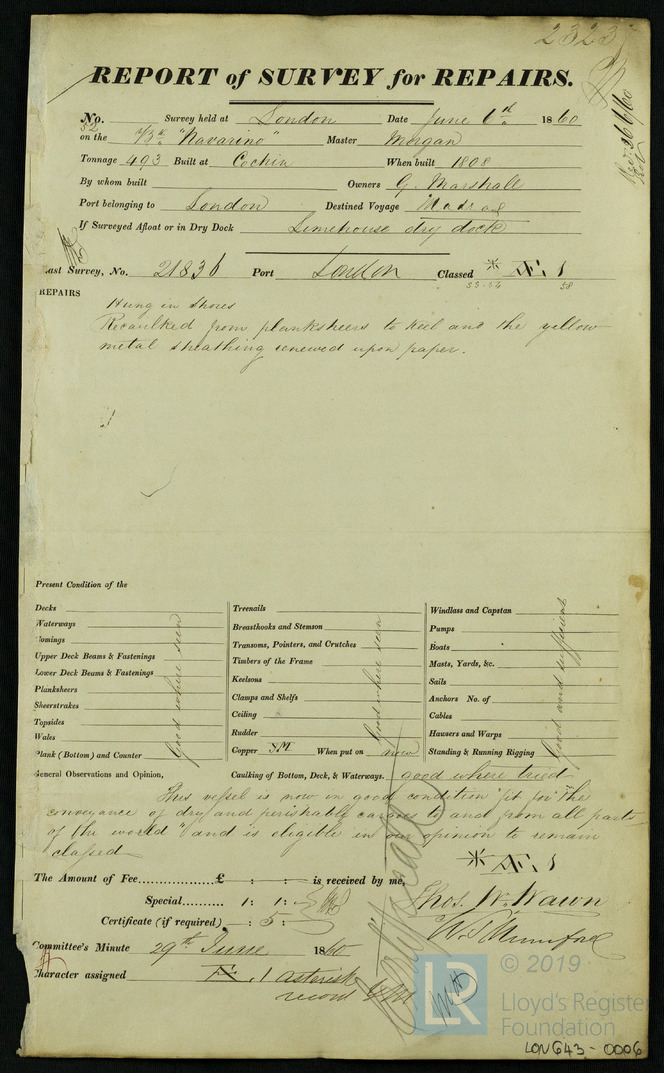 2323
REPORT of SURVEY for REPAIRS.
No. 52 Survey held at London Date June 6th 1860
on the Bk "Navarino" Master Morgan
Tonnage 493 Built at Cochin When built 1808
By whom built Owners G. Marshall
Port belonging to London Destined Voyage Madras
If Surveyed Afloat or in Dry Dock Limehouse dry dock
Last Survey, No. 21836 Port London Classed * Æ 1
55-56 58
REPAIRS
Hung in Shores
Recaulked from planksheers to keel and the yellow
metal sheathing renewed upon paper.
Present Condition of the
Decks
Waterways
Comings
Upper Deck Beams & Fastenings
Lower Deck Beams & Fastenings
Planksheers
Sheerstrakes
Topsides
Wales
Plank (Bottom) and Counter
Good where seen
Treenails
Breasthooks and Stemson
Transoms, Pointers, and Crutches
Timbers of the Frame
Keelsons
Clamps and Shelfs
Ceiling
Rudder
Copper YM When put on now
Good where seen
Windlass and Capstan
Pumps
Boats
Masts, Yards, &c.
Sails
Anchors No. of
Cables
Hawsers and Warps
Standing & Running Rigging
Good and sufficient
General Observations and Opinion,
Caulking of Bottom, Deck, & Waterways. good where tried
This vessel is now in good condition "fit for the
conveyance of dry and perishable cargoes to and from all parts
of the world" and is eligible in our opinion to remain
classed
* Æ 1
The Amount of Fee £ : : is received by me,
Special 1: 1:
Certificate (if required) : 5 :
Thos. W. Wawn
W S Mumford
Committee's Minute 29th June 1860
Character assigned Æ 1 asterisk
record YM
LR
© 2019
Lloyd's Register
Foundation
LON643-0006